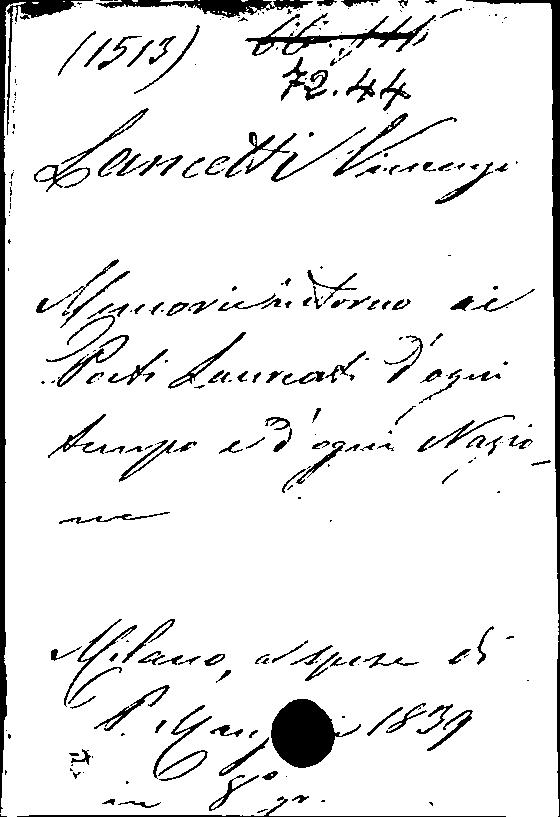 (1513) 66.111
72.44
Lancetti Vincenzo
Memorie intorno ai
Poeti Laureati d'ogni
tempo e d'ogni Nazio-
ne
Milano, a spese di
P. 1839
in 8° gr.